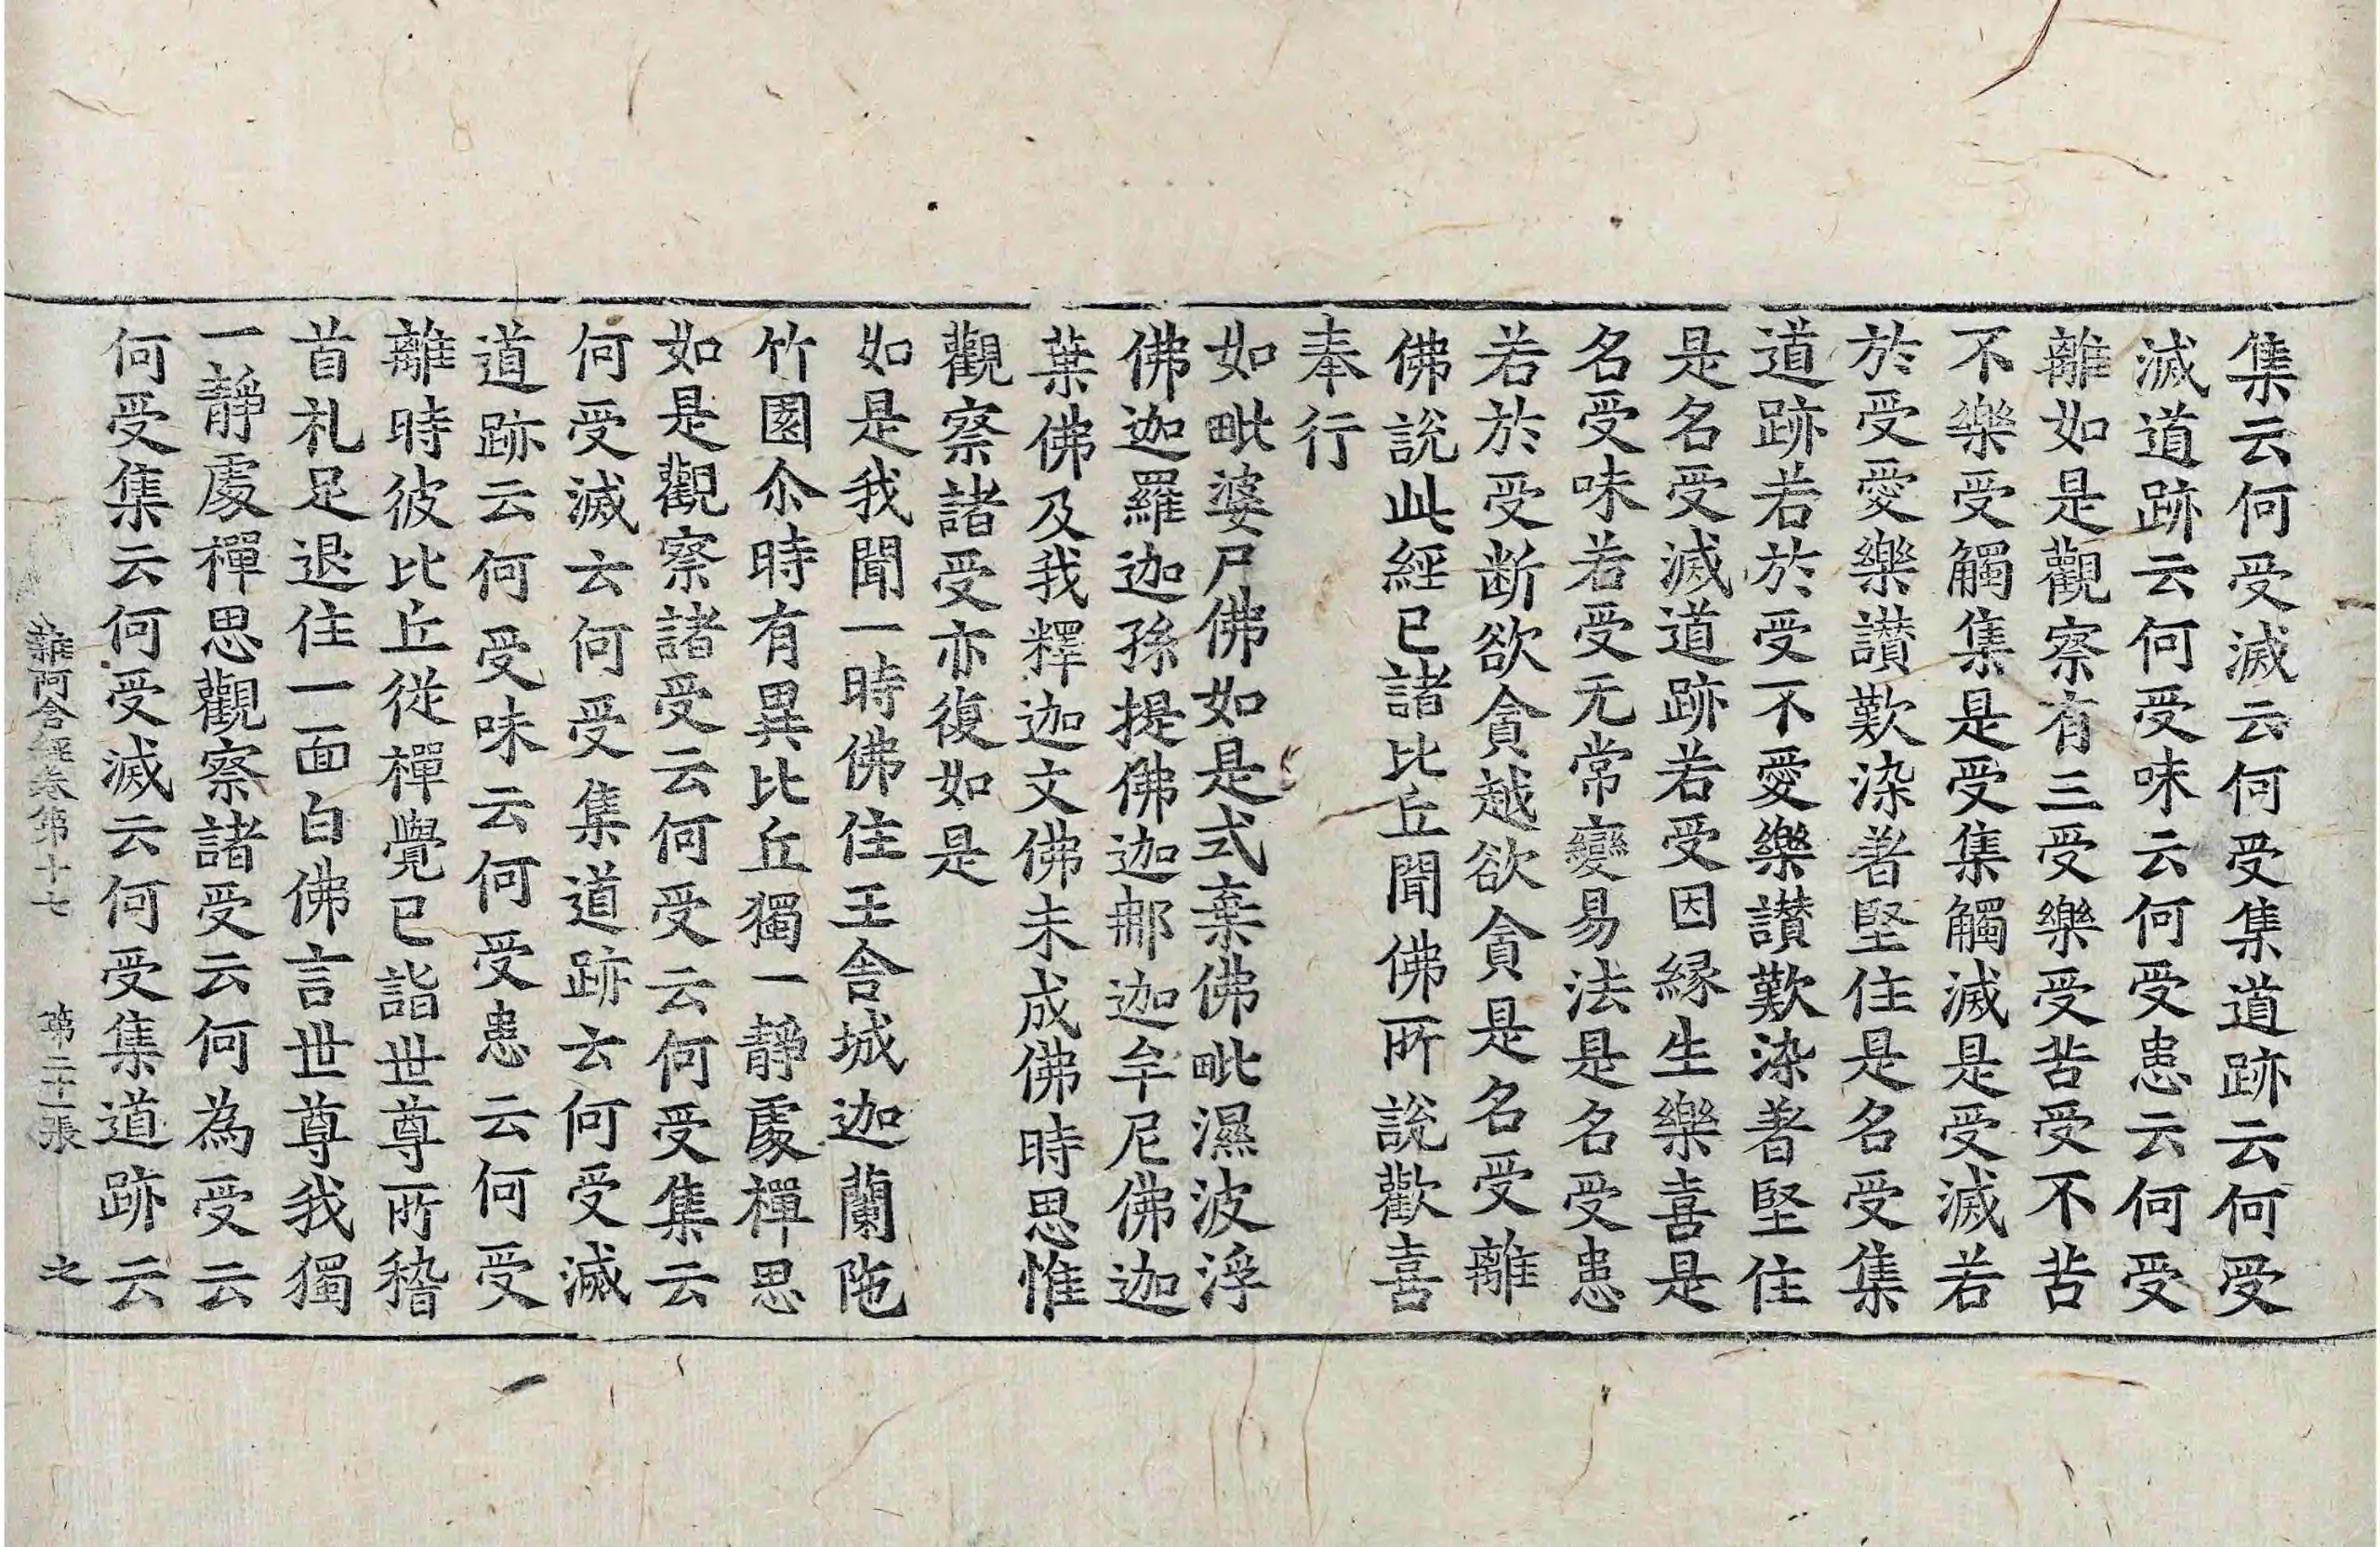 集云何受滅云何受集道跡云何受
滅道跡云何受味云何受患云何受
離如是觀察有三受樂受苦受不苦
不樂受觸集是受集觸滅是受滅若
於受愛樂讃歎染著堅住是名受集
道跡若於受不愛樂讃歎染著堅住
是名受滅道跡若受因縁生樂喜是
名受味若受无常變易法是名受患
若於受断欲貪越欲貪是名受離
佛說此經已諸比丘聞佛所說歡喜
奉行
如毗婆尸佛如是式棄佛毗濕波浮
佛迦羅迦孫提佛迦郍迦牟尼佛迦
葉佛及我釋迦文佛未成佛時思惟
觀察諸受亦復如是
如是我聞一時佛住王舍城迦蘭陁
竹園尒時有異比丘獨一靜處禪思
如是觀察諸受云何受云何受集云
何受滅云何受集道跡云何受滅
道跡云何受味云何受患云何受
離時彼比丘從禪覺已詣世尊所稽
首礼足退住一面白佛言世尊我獨
一靜處禪思觀察諸受云何為受云
何受集云何受滅云何受集道跡云
雜阿含經卷第十七 第二十張 之